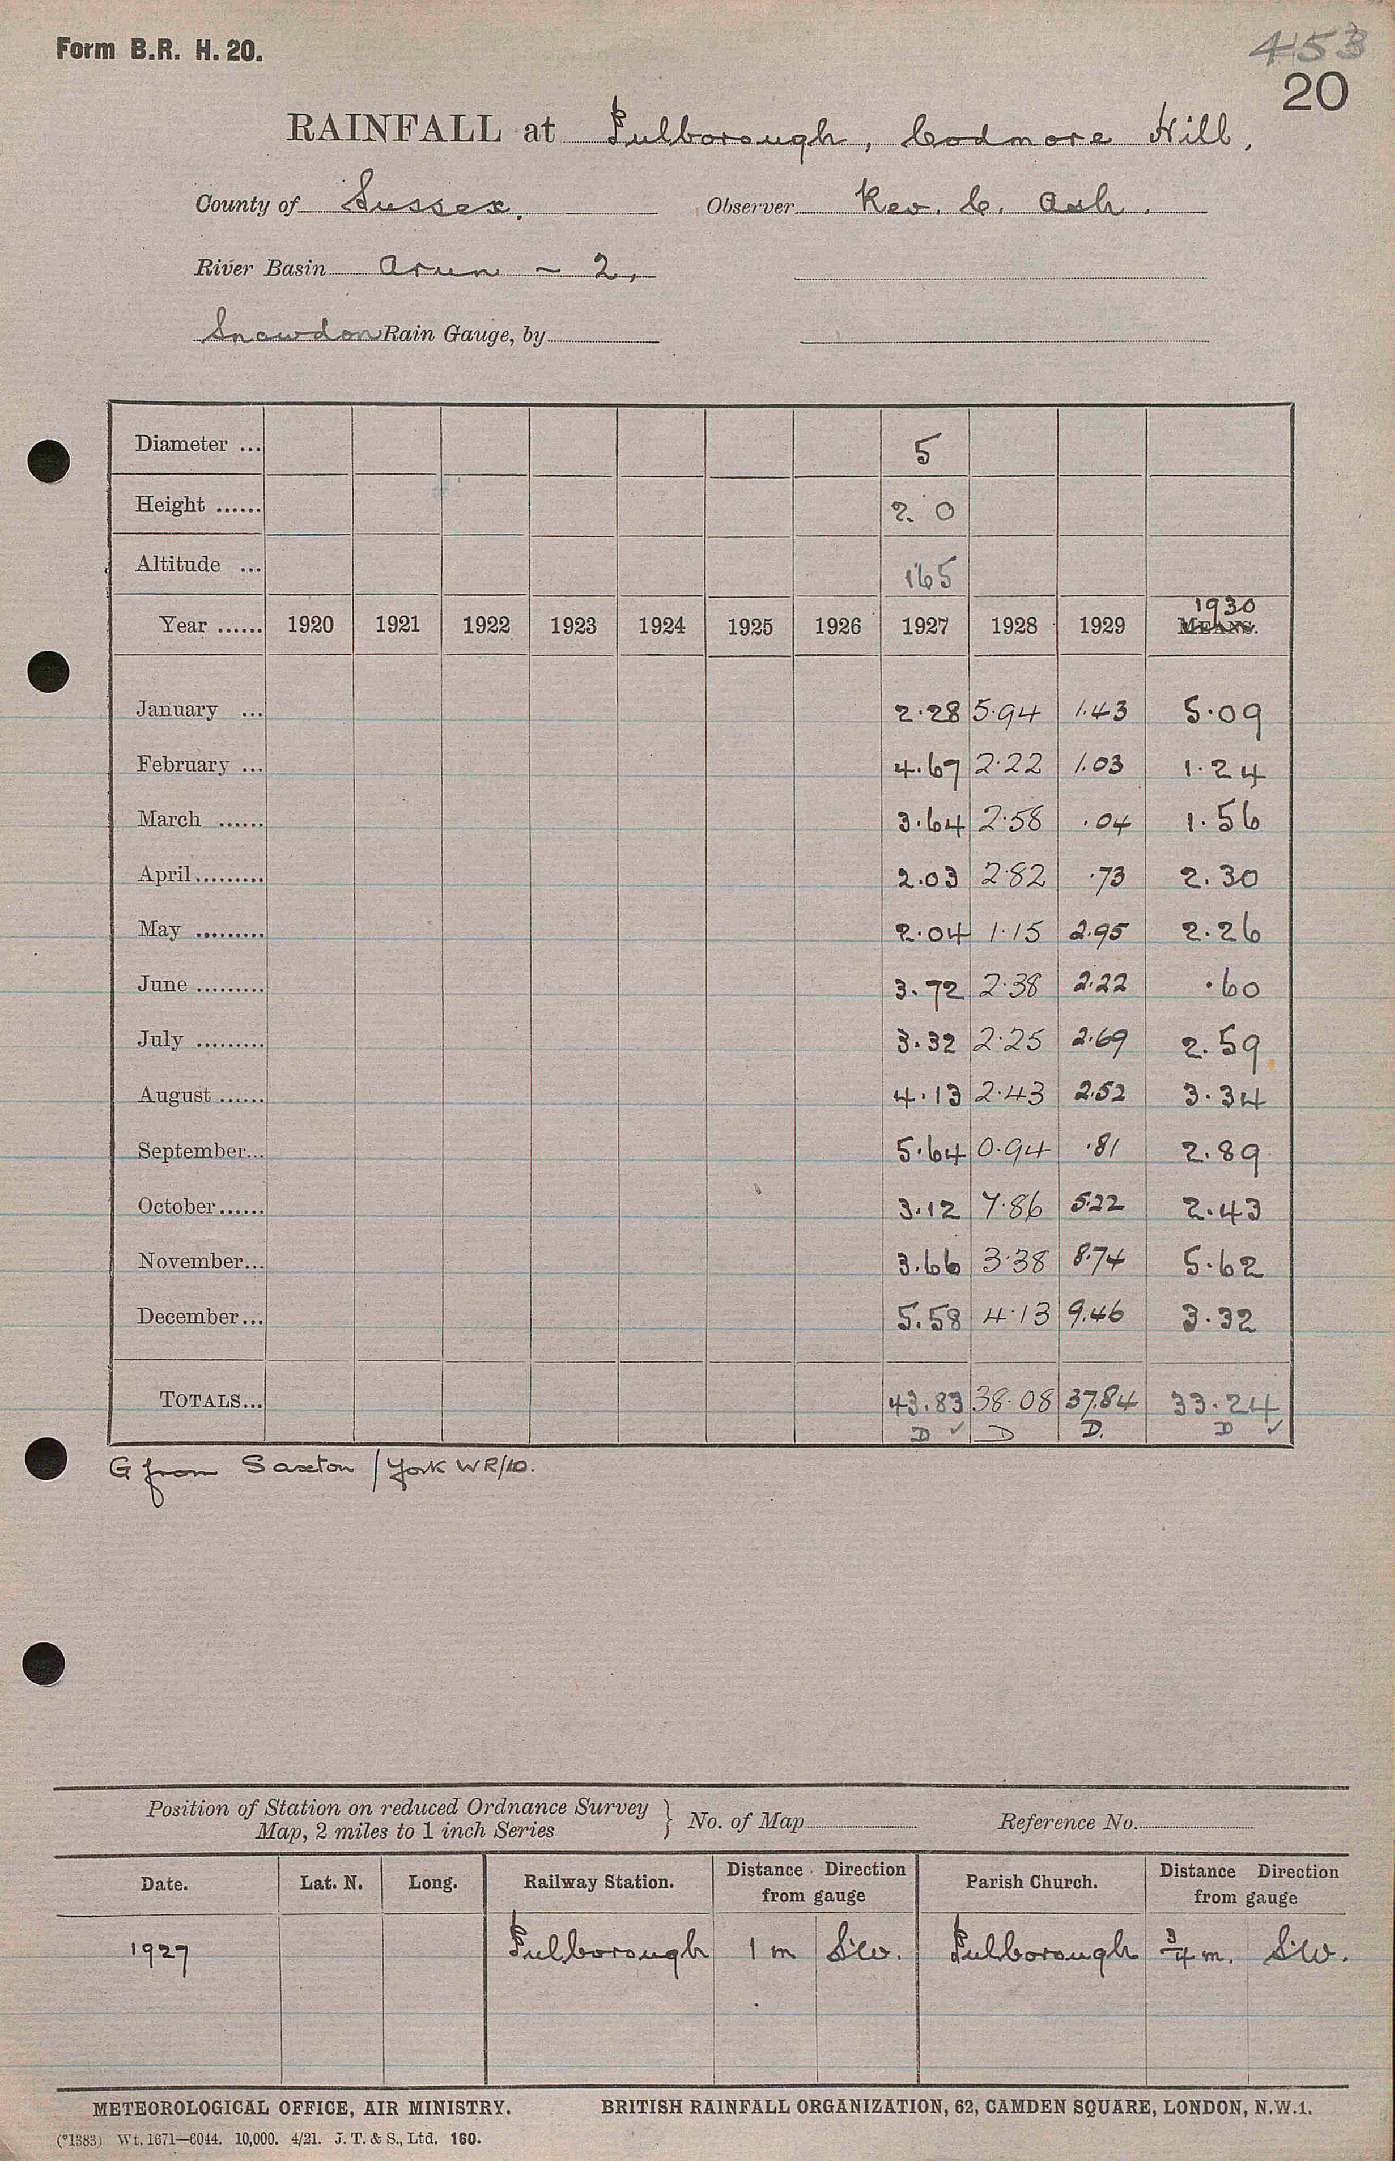 Form B.R. H. 20.
453
20
RAINFALL at Pulborough, Codmore Hill,
County of Sussex. Observer Rev. C. Ash.
River Basin Arun - 2,
Snowdon Rain Gauge, by
Diameter ... 5
Height ...... 2 0
Altitude ... 165
1930
Year ...... 1920 1921 1922 1923 1924 1925 1926 1927 1928 1929 MEANS.
January ... 2.28 5.94 1.43 5.09
February ... 4.67 2.22 1.03 1.24
March ...... 3.64 2.58 .04 1.56
April......... 2.03 2.82 .73 2.30
May ......... 2.04 1.15 2.95 2.26
June ......... 3.72 2.38 2.22 .60
July ......... 3.32 2.25 2.69 2.59
August ...... 4.13 2.43 2.52 3.34
September... 5.64 0.94 .81 2.89
October...... 3.12 7.86 5.22 2.43
November... 3.66 3.38 8.74 5.62
December... 5.58 4.13 9.46 3.32
TOTALS... 43.83 38.08 37.84 33.24
D ✓ D D. D ✓
G from Saxton / York WR/10.
Position of Station on reduced Ordnance Survey
Map, 2 miles to 1 inch Series } No. of Map Reference No.
Date. Lat. N. Long. Railway Station. Distance Direction from gauge Parish Church. Distance Direction from gauge
1927 Pulborough 1 m S.W. Pulborough 3/4 m. S.W.
METEOROLOGICAL OFFICE, AIR MINISTRY. BRITISH RAINFALL ORGANIZATION, 62, CAMDEN SQUARE, LONDON, N.W.1.
(*1383) Wt. 1671—6044. 10,000. 4/21. J. T. & S., Ltd. 160.